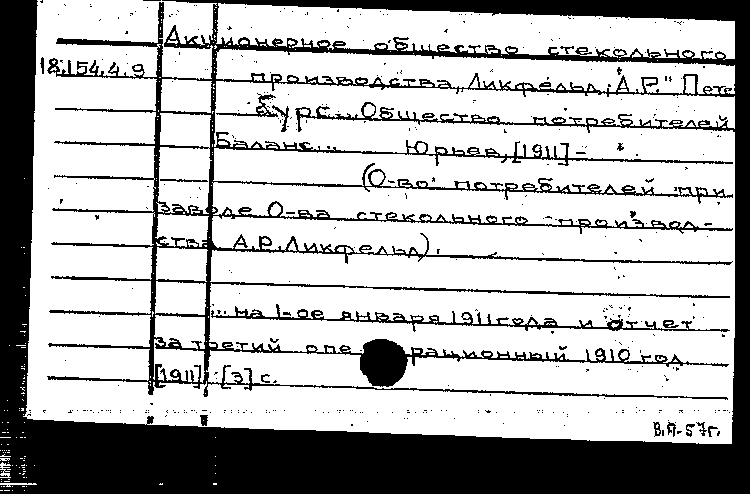 Акционерное общество стекольного
18.154.4.9
производства „Ликфельд, А.Р." Пете
бург... Общество потребителей
Баланс... Юрьев, [1911] -
(О-во потребителей при
заводе О-ва стекольного производ-
ства А.Р. Ликфельд).
... на 1-ое января 1911 года и отчет
за третий операционный 1910 год.
[1911]. [3] с.
В.П.-57г.